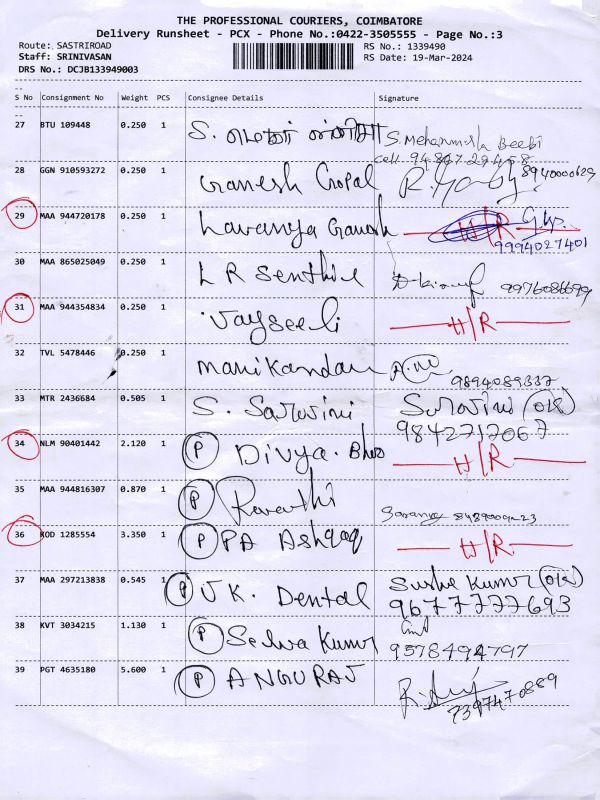 THE PROFESSIONAL COURIERS, COIMBATORE
Delivery Runsheet - PCX - Phone No.:0422-3505555 - Page No.:3
Route: SASTRIROAD RS No.: 1339490
Staff: SRINIVASAN RS Date: 19-Mar-2024
DRS No.: DCJB133949003
S No Consignment No Weight PCS Consignee Details Signature
27 BTU 109448 0.250 1 S.
28 GGN 910593272 0.250 1 Ganesh Gopal 8940000629
29 MAA 944720178 0.250 1 Lavanya Ganesh H/R
9994027401
30 MAA 865025049 0.250 1 L R Senthil
31 MAA 944354834 0.250 1 Jaysee li H/R
32 TVL 5478446 0.250 1 manikandan
9894089337
33 MTR 2436684 0.505 1 S. Sarojini Sarojini
9842717067
34 NLM 90401442 2.120 1 P Divya. H/R
35 MAA 944816307 0.870 1 P Revathi
36 KOD 1285554 3.350 1 P PA Ashqaq H/R
37 MAA 297213838 0.545 1 P J K. Dental Kumar
9677777693
38 KVT 3034215 1.130 1 P Selva Kumar
9578494797
39 PGT 4635180 5.600 1 P ANGURAJ
7397470889